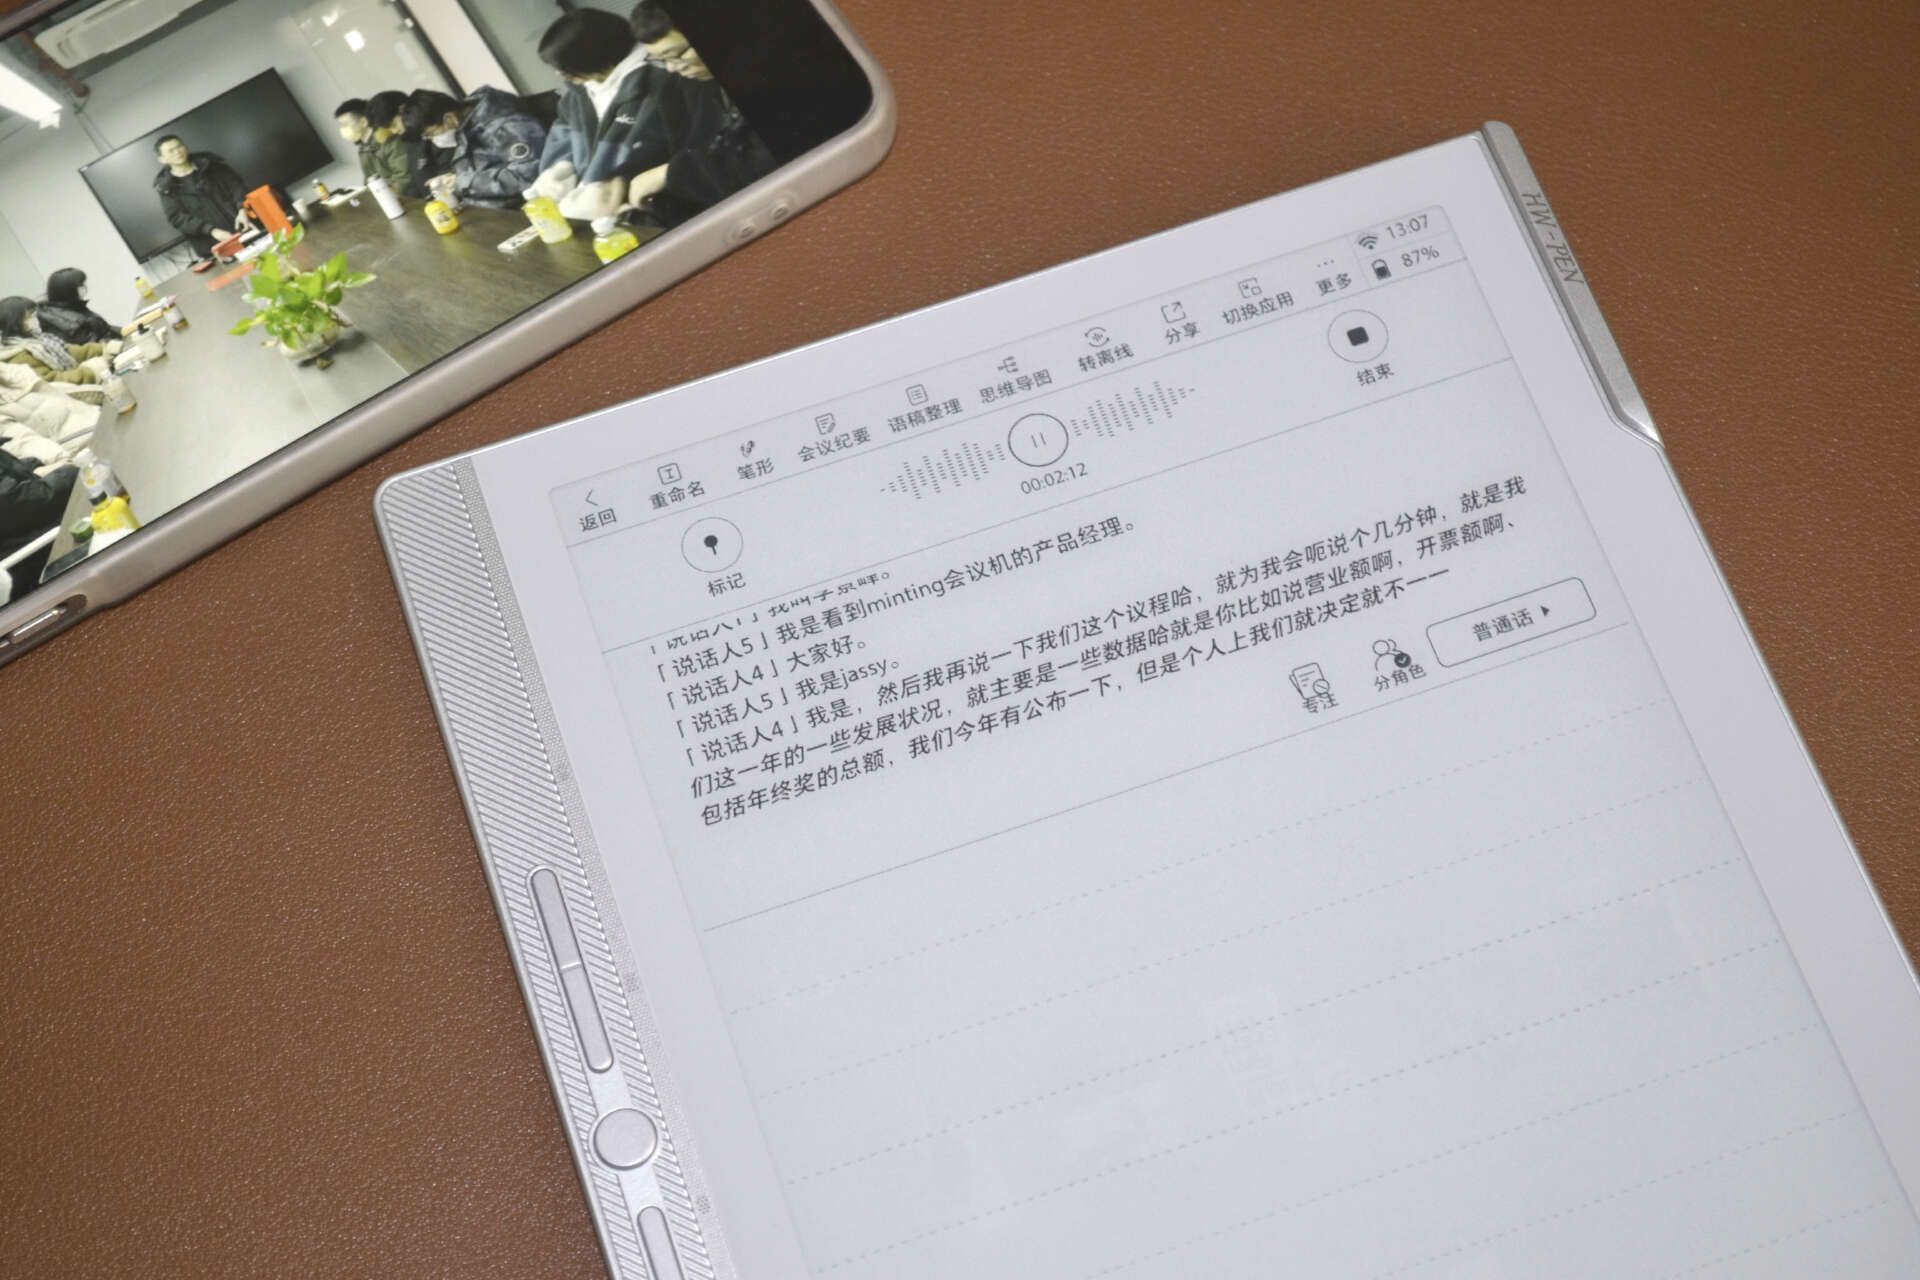 HW-PEN
13:07
87%
返回
重命名
笔形
会议纪要
语稿整理
思维导图
转离线
分享
切换应用
更多
标记
00:02:12
结束
「说话人1」我叫
「说话人5」我是看到minting会议机的产品经理。
「说话人4」大家好。
「说话人5」我是jassy。
「说话人4」我是，然后我再说一下我们这个议程哈，就为我会呃说个几分钟，就是我
们这一年的一些发展状况，就主要是一些数据哈就是你比如说营业额啊，开票额啊、
包括年终奖的总额，我们今年有公布一下，但是个人上我们就决定就不一一
专注
分角色
普通话